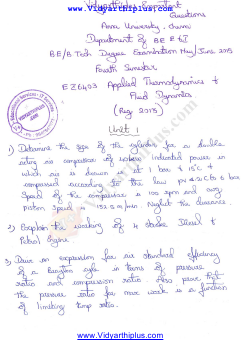 www.Vidyarthiplus.com
Questions
Anna University, Chennai
Department of BE E&I
BE/B.Tech Degree Examination May/June 2015
Fourth Semester
Applied Thermodynamics &
Fluid Dynamics
(Reg 2013)
Unit 1
1) Determine the size of the cylinder for a double
acting air compressor of indicated power in
which air is drawn in at 1 bar & 15°C &
compressed according to the law to 6 bar
Speed of the compressor is 100 rpm and avg
piston speed is 152.5 m/min. Neglect the clearance
2) Explain the working of 4 stroke Diesel &
Petrol Engine
3) Derive an expression for air standard efficiency
of a Brayton cycle in terms of pressure
ratio and compression ratio. Also prove that
the pressure ratio for max work is a function
of limiting temp ratio.
www.Vidyarthiplus.com